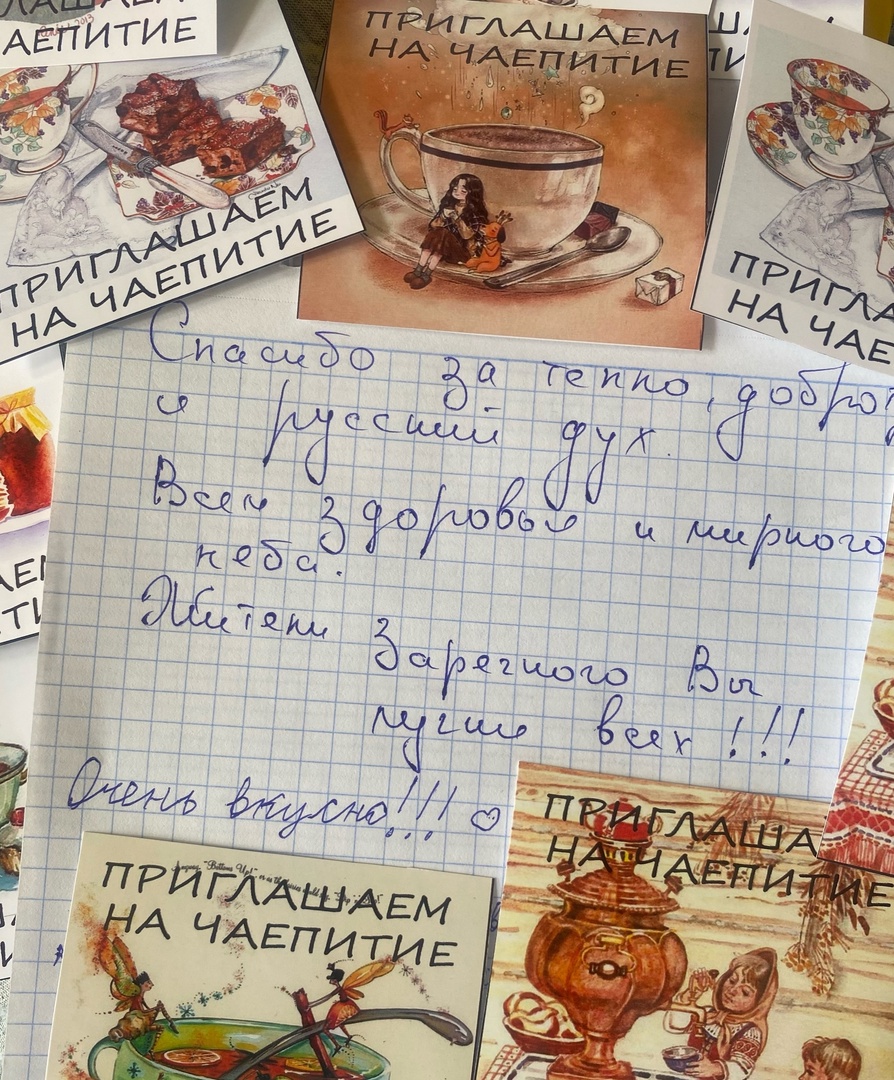 АЕПИТИЕ
ПРИГЛАШАЕМ
НА ЧАЕПИТИЕ
ПРИГЛАШАЕМ
НА ЧАЕПИТИЕ
ПРИГЛА
НА ЧАЕ
Спасибо за тепло, доброту
и русский дух.
Всем здоровья и мирного
неба.
Жители Заречного Вы
лучше всех!!!
Очень вкусно!!! ♡
ПРИГЛАШАЕМ
НА ЧАЕПИТИЕ
ПРИГЛАША
НА ЧАЕПИТИЕ